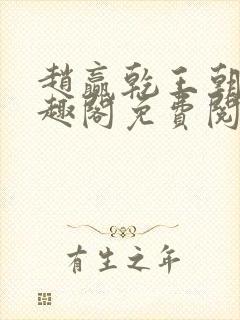 趙贏乾王朝
趣閣免費閱
有生之年